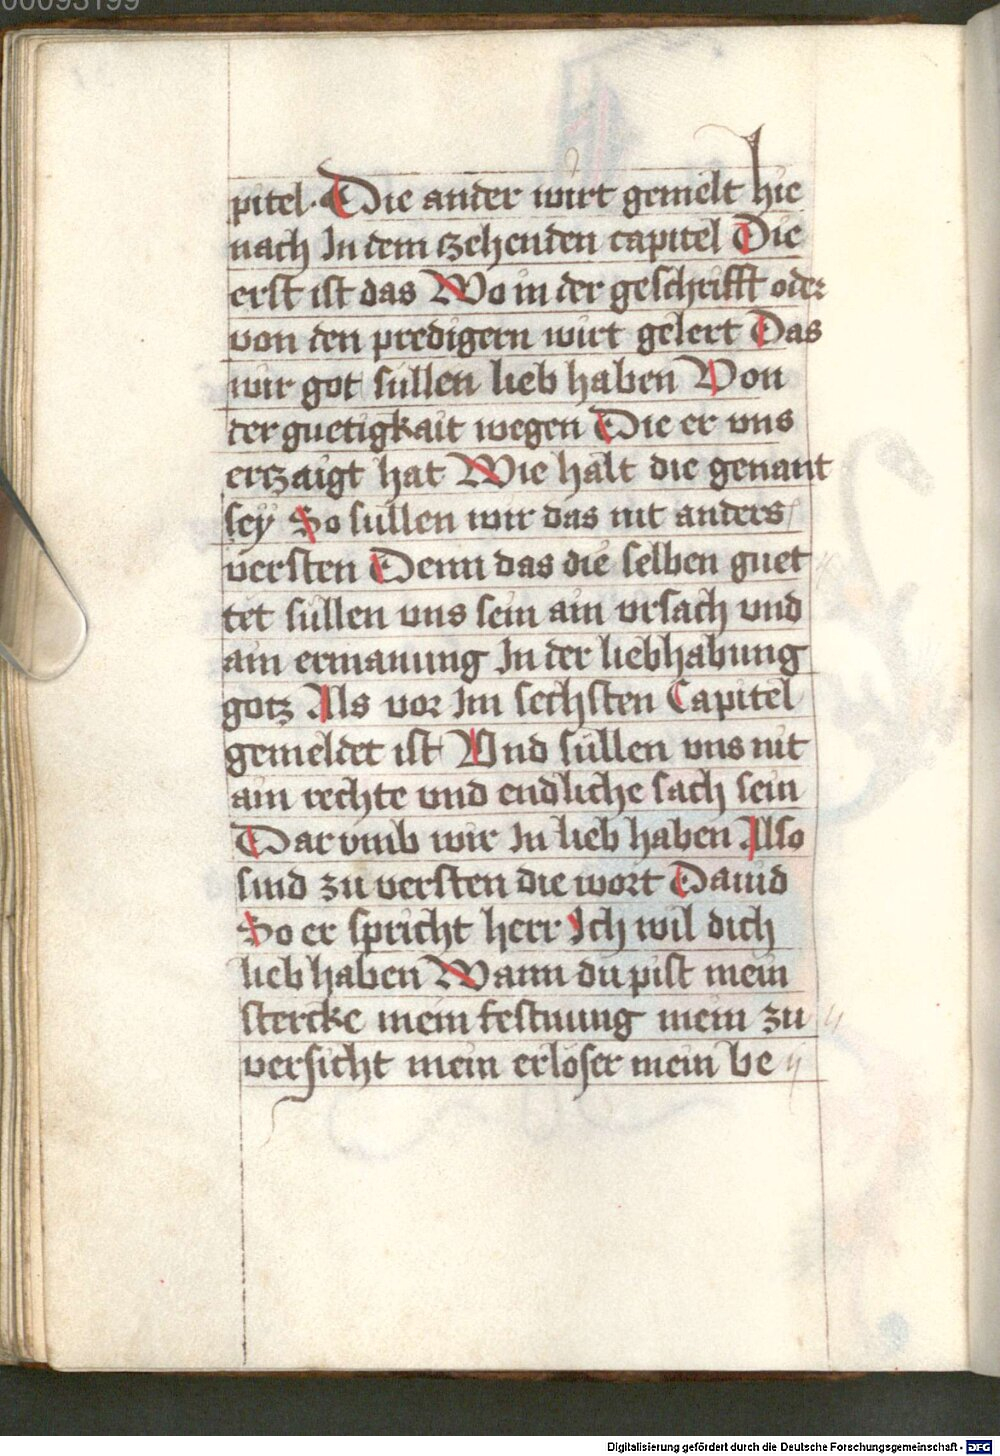 00093199
pitel. Die ander wirt gemelt hie
nach In dem czehenden capitel Die
erst ist das Wo in der geschrifft oder
von den predigern wirt gelert Das
wir got sullen lieb haben Von
der guetigkait wegen Die er vns
erczaigt hat Wie halt die genant
sey So sullen wir das nit anders
versten Denn das die selben guet
tet sullen vns sein ain vrsach vnd
ain ermanung In der liebhabung
gotz Als vor Im sechsten Capitel
gemeldet ist Vnd sullen vns nit
ain rechte vnd endliche sach sein
Dar vmb wir In lieb haben Also
sind zu versten die wort Dauid
So er spricht herr Ich wil dich
lieb haben Wann du pist mein
stercke mein festnung mein zu
versicht mein erlöser mein be
Digitalisierung gefördert durch die Deutsche Forschungsgemeinschaft - DFG